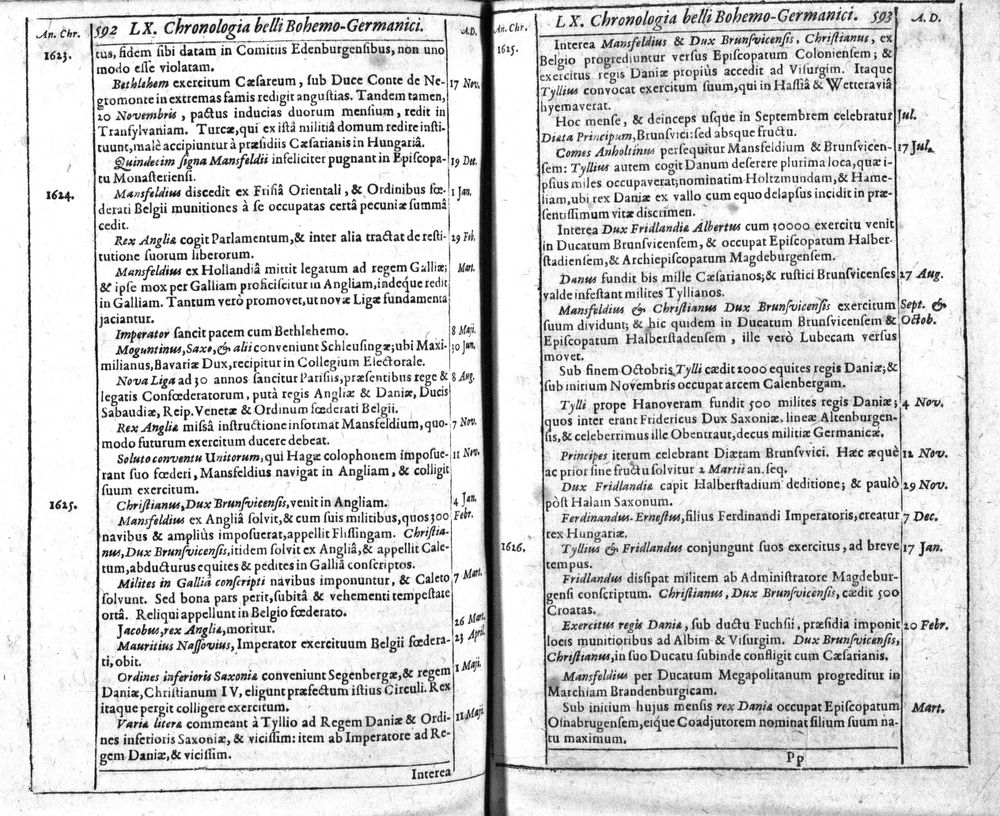 An. Chr.
592 LX. Chronologia belli Bohemo-Germanici.
A.D.
1623.
tus, fidem sibi datam in Comitiis Edenburgensibus, non uno
modo esse violatam.
Bethlehem exercitum Cæsareum, sub Duce Conte de Ne-
17 Nov.
gromonte in extremas famis redigit angustias. Tandem tamen,
20 Novembris, pactus inducias duorum mensium, redit in
Transylvaniam. Turcæ, qui ex istâ militiâ domum redire insti-
tuunt, malè accipiuntur à præsidiis Cæsarianis in Hungariâ.
Quindecim signa Mansfeldii infeliciter pugnant in Episcopa-
19 Dec.
tu Monasteriensi.
1624.
Mansfeldius discedit ex Frisiâ Orientali, & Ordinibus fœ-
1 Jan.
derati Belgii munitiones à se occupatas certâ pecuniæ summâ
cedit.
Rex Angliæ cogit Parlamentum, & inter alia tractat de resti-
29 Feb.
tutione suorum liberorum.
Mansfeldius ex Hollandiâ mittit legatum ad regem Galliæ;
Mart.
& ipse mox per Galliam proficiscitur in Angliam, indeque redit
in Galliam. Tantum verò promovet, ut novæ Ligæ fundamenta
jaciantur.
Imperator sancit pacem cum Bethlehemo.
8 Maji.
Moguntinus, Saxo, & alii conveniunt Schleusingæ; ubi Maxi-
30 Jun.
milianus, Bavariæ Dux, recipitur in Collegium Electorale.
Nova Liga ad 30 annos sancitur Parisiis, præsentibus rege &
8 Aug.
legatis Confœderatorum, putà regis Angliæ & Daniæ, Ducis
Sabaudiæ, Reip. Venetæ & Ordinum fœderati Belgii.
Rex Angliæ missâ instructione informat Mansfeldium, quo-
7 Nov.
modo futurum exercitum ducere debeat.
Soluto conventu Unitorum, qui Hagæ colophonem imposue-
11 Nov.
rant suo fœderi, Mansfeldius navigat in Angliam, & colligit
suum exercitum.
1625.
Christianus, Dux Brunsvicensis, venit in Angliam.
4 Jan.
Mansfeldius ex Angliâ solvit, & cum suis militibus, quos 300
Febr.
navibus & ampliùs imposuerat, appellit Flissingam. Christia-
nus, Dux Brunsvicensis, itidem solvit ex Angliâ, & appellit Cale-
tum, abducturus equites & pedites in Galliâ conscriptos.
Milites in Galliâ conscripti navibus imponuntur, & Caleto
7 Mart.
solvunt. Sed bona pars perit, subitâ & vehementi tempestate
ortâ. Reliqui appellunt in Belgio fœderato.
Jacobus, rex Angliæ, moritur.
26 Mart.
Mauritius Nassovius, Imperator exercituum Belgii fœdera-
23 April.
ti, obit.
Ordines inferioris Saxoniæ conveniunt Segenbergæ, & regem
1 Maji.
Daniæ, Christianum IV, eligunt præfectum istius Circuli. Rex
itaque pergit colligere exercitum.
Variæ literæ commeant à Tyllio ad Regem Daniæ & Ordi-
11 Maji.
nes inferioris Saxoniæ, & vicissim: item ab Imperatore ad Re-
gem Daniæ, & vicissim.
Interea
An. Chr.
LX. Chronologia belli Bohemo-Germanici. 593
A. D.
1625.
Interea Mansfeldius & Dux Brunsvicensis, Christianus, ex
Belgio progrediuntur versus Episcopatum Coloniensem; &
exercitus regis Daniæ propiùs accedit ad Visurgim. Itaque
Tyllius convocat exercitum suum, qui in Hassiâ & Wetteraviâ
hyemaverat.
Hoc mense, & deinceps usque in Septembrem celebratur
Jul.
Diæta Principum, Brunsvici: sed absque fructu.
Comes Anholtinus persequitur Mansfeldium & Brunsvicen-
17 Jul.
sem: Tyllius autem cogit Danum deserere plurima loca, quæ i-
psius miles occupaverat; nominatim Holtzmundam, & Hame-
liam, ubi rex Daniæ ex vallo cum equo delapsus incidit in præ-
sentissimum vitæ discrimen.
Interea Dux Fridlandiæ Albertus cum 30000 exercitu venit
in Ducatum Brunsvicensem, & occupat Episcopatum Halber-
stadiensem, & Archiepiscopatum Magdeburgensem.
Danus fundit bis mille Cæsarianos; & rustici Brunsvicenses
27 Aug.
valde infestant milites Tyllianos.
Mansfeldius & Christianus Dux Brunsvicensis exercitum
Sept. &
suum dividunt; & hic quidem in Ducatum Brunsvicensem &
Octob.
Episcopatum Halberstadensem, ille verò Lubecam versus
movet.
Sub finem Octobris, Tylli cædit 2000 equites regis Daniæ; &
sub initium Novembris occupat arcem Calenbergam.
Tylli prope Hanoveram fundit 500 milites regis Daniæ;
4 Nov.
quos inter erant Fridericus Dux Saxoniæ, lineæ Altenburgen-
sis, & celeberrimus ille Obentraut, decus militiæ Germanicæ.
Principes iterum celebrant Diætam Brunsvici. Hæc æquè
12 Nov.
ac prior sine fructu solvitur 2 Martii an. seq.
Dux Fridlandiæ capit Halberstadium deditione; & paulò
29 Nov.
pòst Halam Saxonum.
Ferdinandus-Ernestus, filius Ferdinandi Imperatoris, creatur
7 Dec.
rex Hungariæ.
1626.
Tyllius & Fridlandus conjungunt suos exercitus, ad breve
17 Jan.
tempus.
Fridlandus dissipat militem ab Administratore Magdebur-
gensi conscriptum. Christianus, Dux Brunsvicensis, cædit 500
Croatas.
Exercitus regis Daniæ, sub ductu Fuchsii, præsidia imponit
20 Febr.
locis munitioribus ad Albim & Visurgim. Dux Brunsvicensis,
Christianus, in suo Ducatu subinde confligit cum Cæsarianis.
Mansfeldius per Ducatum Megapolitanum progreditur in
Marchiam Brandenburgicam.
Sub initium hujus mensis rex Daniæ occupat Episcopatum
Mart.
Osnabrugensem, eique Coadjutorem nominat filium suum na-
tu maximum.
Pp